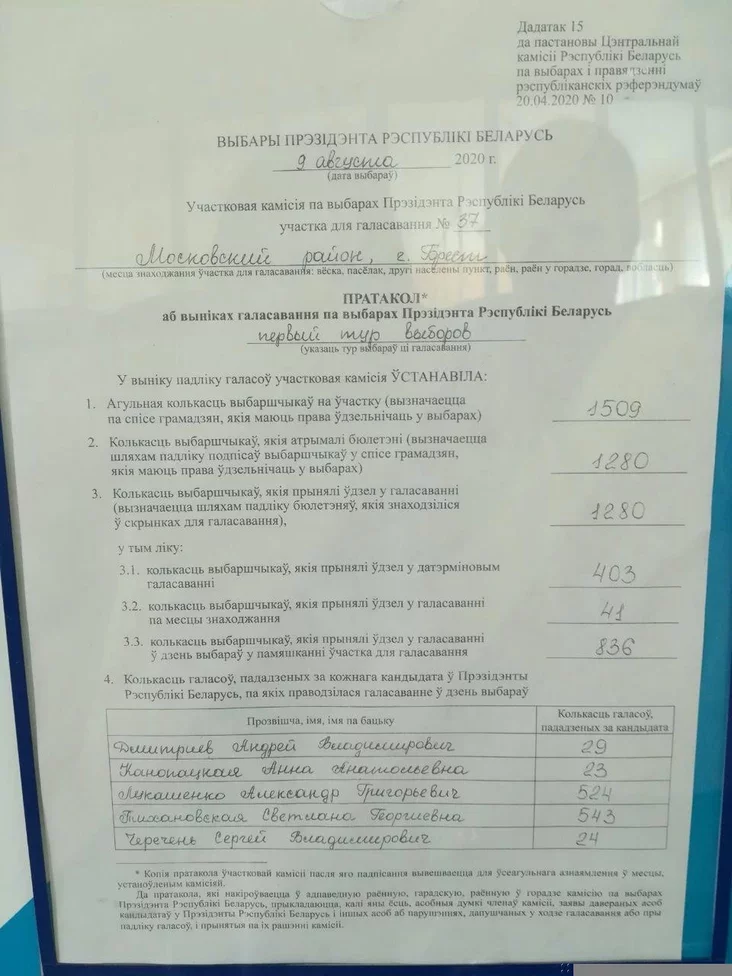 Дадатак 15
да пастановы Цэнтральнай
камісіі Рэспублікі Беларусь
па выбарах і правядзенні
рэспубліканскіх рэферэндумаў
20.04.2020 № 10
ВЫБАРЫ ПРЭЗІДЭНТА РЭСПУБЛІКІ БЕЛАРУСЬ
9 августа 2020 г.
(дата выбараў)
Участковая камісія па выбарах Прэзідэнта Рэспублікі Беларусь
участка для галасавання № 37
Московский район, г. Брест
(месца знаходжання ўчастка для галасавання: вёска, пасёлак, другі населены пункт, раён, раён у горадзе, горад, вобласць)
ПРАТАКОЛ*
аб выніках галасавання па выбарах Прэзідэнта Рэспублікі Беларусь
первый тур выборов
(указаць тур выбараў ці галасавання)
У выніку падліку галасоў участковая камісія ЎСТАНАВІЛА:
1. Агульная колькасць выбаршчыкаў на ўчастку (вызначаецца
па спісе грамадзян, якія маюць права ўдзельнічаць у выбарах) 1509
2. Колькасць выбаршчыкаў, якія атрымалі бюлетэні (вызначаецца
шляхам падліку подпісаў выбаршчыкаў у спісе грамадзян,
якія маюць права ўдзельнічаць у выбарах) 1280
3. Колькасць выбаршчыкаў, якія прынялі ўдзел у галасаванні
(вызначаецца шляхам падліку бюлетэняў, якія знаходзіліся
ў скрынках для галасавання), 1280
у тым ліку:
3.1. колькасць выбаршчыкаў, якія прынялі ўдзел у датэрміновым
галасаванні 403
3.2. колькасць выбаршчыкаў, якія прынялі ўдзел у галасаванні
па месцы знаходжання 41
3.3. колькасць выбаршчыкаў, якія прынялі ўдзел у галасаванні
ў дзень выбараў у памяшканні ўчастка для галасавання 836
4. Колькасць галасоў, пададзеных за кожнага кандыдата ў Прэзідэнты
Рэспублікі Беларусь, па якіх праводзілася галасаванне ў дзень выбараў
Прозвішча, імя, імя па бацьку Колькасць галасоў,
пададзеных за кандыдата
Дмитриев Андрей Владимирович 29
Канопацкая Анна Анатольевна 23
Лукашенко Александр Григорьевич 524
Тихановская Светлана Георгиевна 543
Черечень Сергей Владимирович 24
* Копія пратакола ўчастковай камісіі пасля яго падпісання вывешваецца для ўсеагульнага азнаямлення ў месцы,
устаноўленым камісіяй.
Да пратакола, які накіроўваецца ў адпаведную раённую, гарадскую, раённую ў горадзе камісію па выбарах
Прэзідэнта Рэспублікі Беларусь, прыкладаюцца, калі яны ёсць, асобныя думкі членаў камісіі, заявы давераных асоб
кандыдатаў у Прэзідэнты Рэспублікі Беларусь і іншых асоб аб парушэннях, дапушчаных у ходзе галасавання або пры
падліку галасоў, і прынятыя па іх рашэнні камісіі.